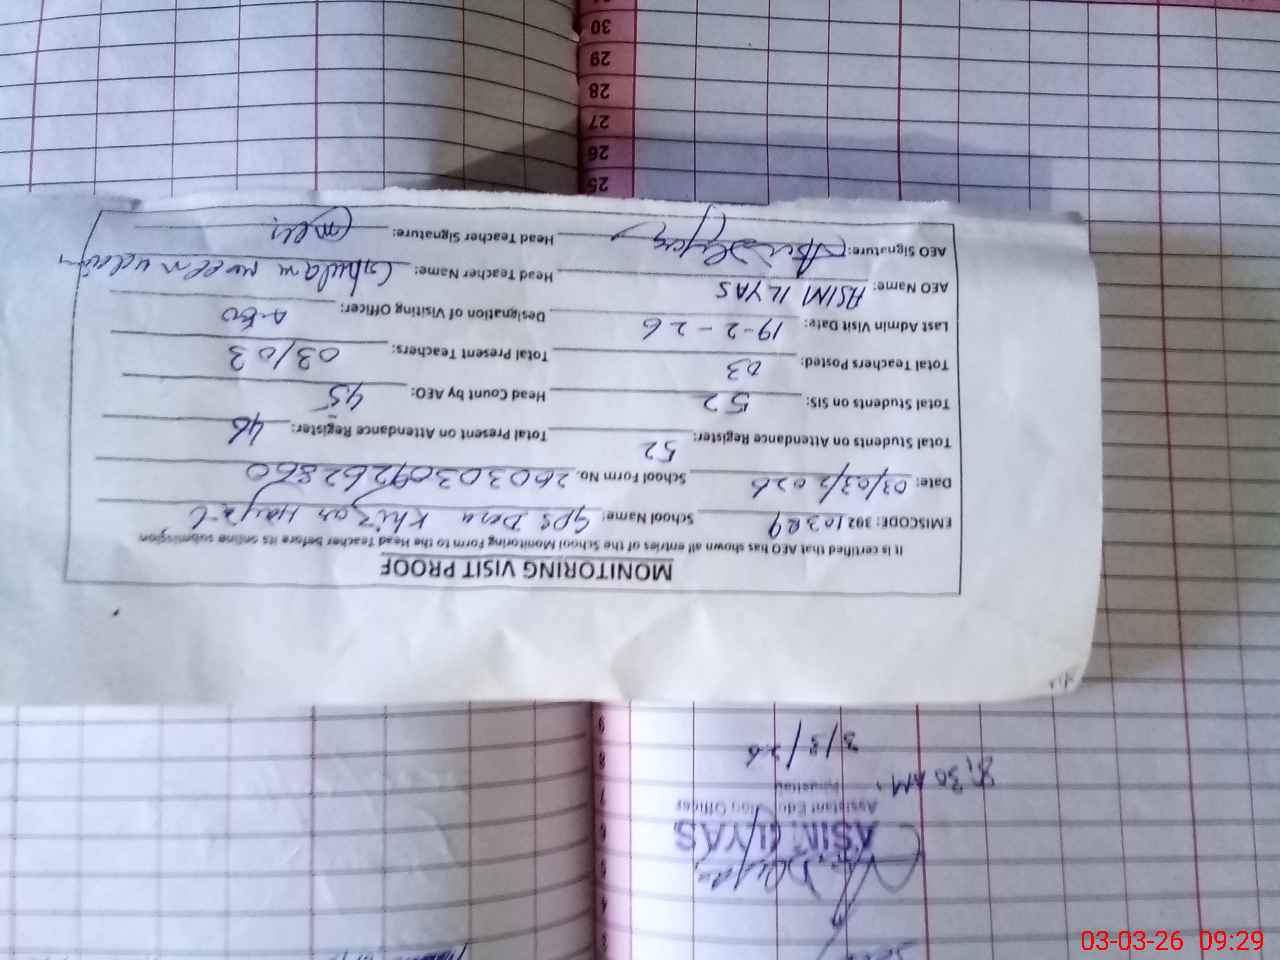 MONITORING VISIT PROOF
It is certified that AEO has shown all entries of the School Monitoring Form to the Head Teacher before its online submission
EMISCODE: 39210389 School Name: GPS Dera Khizar Hayat
Date: 03/03/2026 School Form No. 26030309262860
Total Students on Attendance Register: 52 Total Present on Attendance Register: 46
Total Students on SIS: 52 Head Count by AEO: 45
Total Teachers Posted: 03 Total Present Teachers: 03/03
Last Admin Visit Date: 19-2-26 Designation of Visiting Officer: AEO
AEO Name: ASIM ILYAS Head Teacher Name: Ghulam
AEO Signature: Head Teacher Signature:
25
26
27
28
29
30
3
4
5
6
7
8
9
ASIM ILYAS
Assistant Education Officer
8:30 AM
3/3/26
03-03-26 09:29